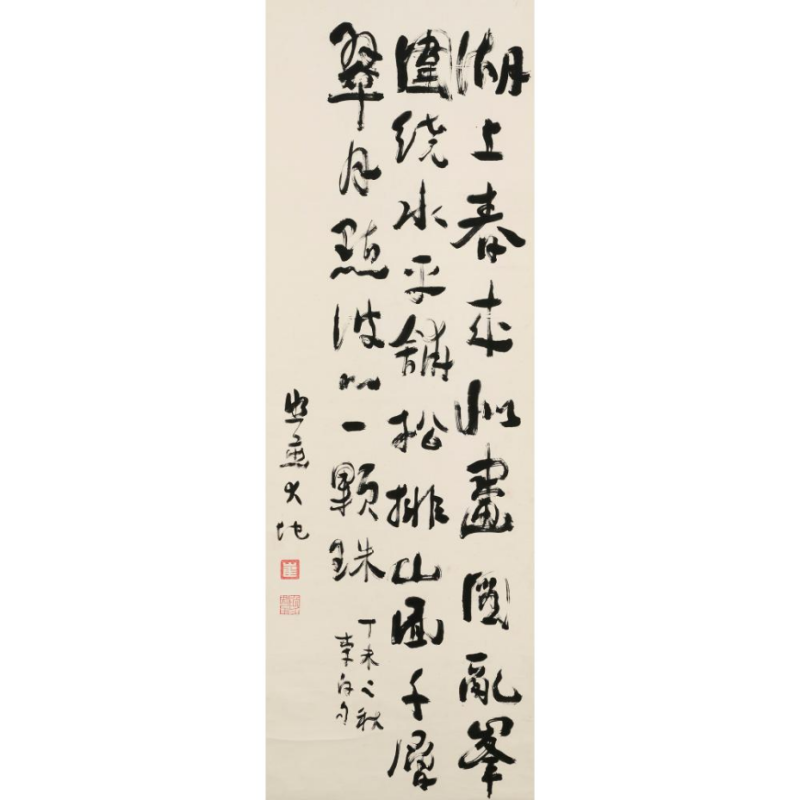 湖上春来似畫圖亂峯
圍繞水平鋪松排山面千層
翠月點波心一顆珠
丁未之秋
李白句
大地
崔